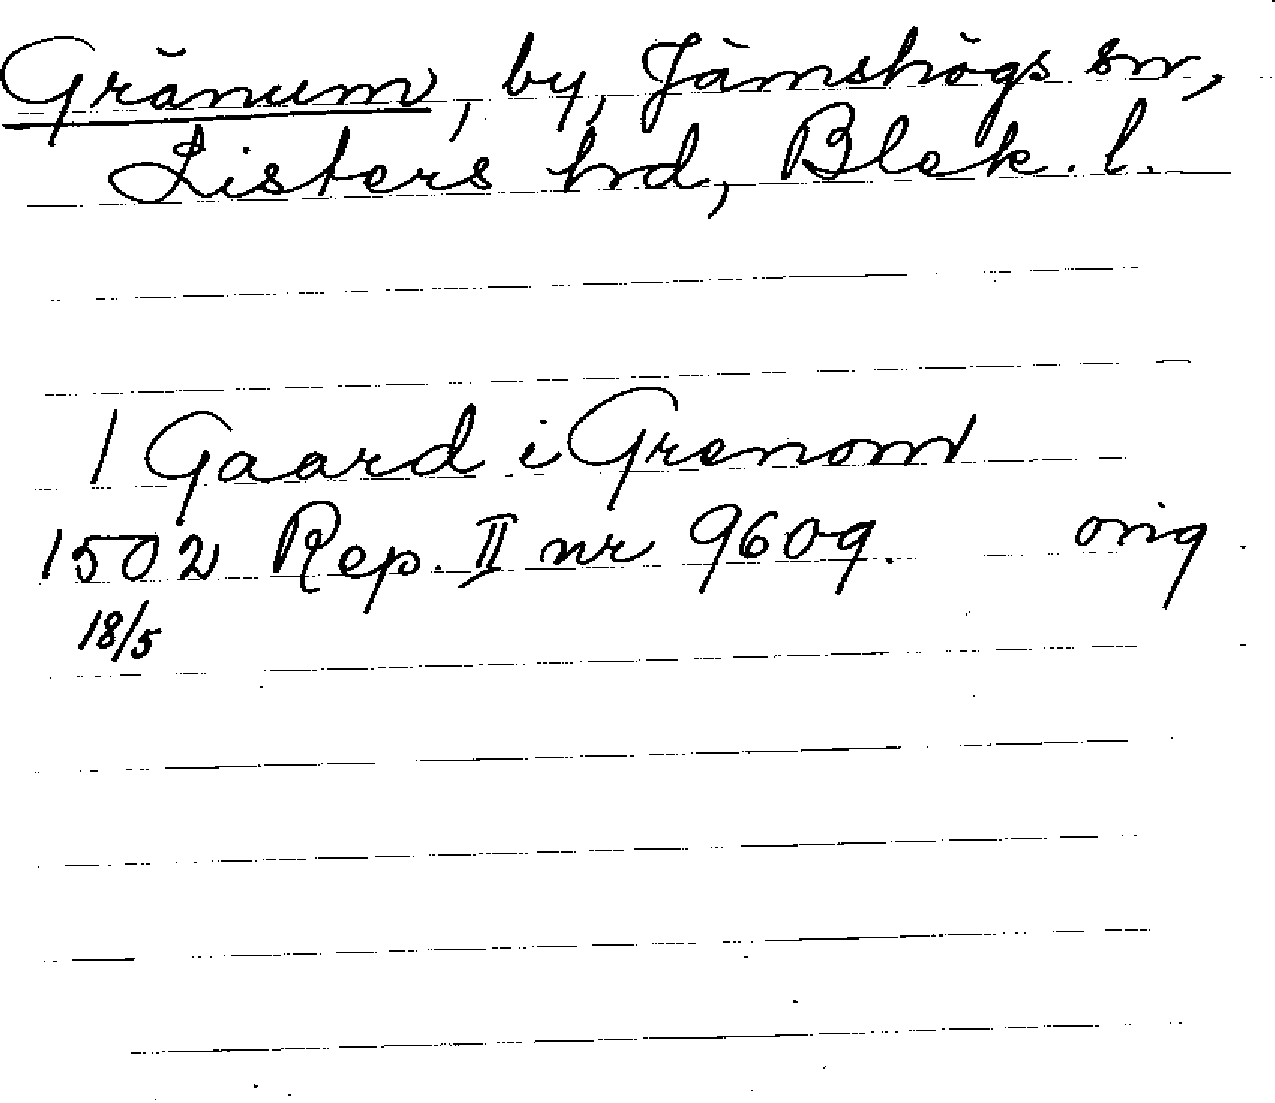 Gränum, by, Jämshögs sn,
Listers hd, Blek. l.
1 Gaard i Grenom
1502 Rep. II nr 9609. orig.
18/5